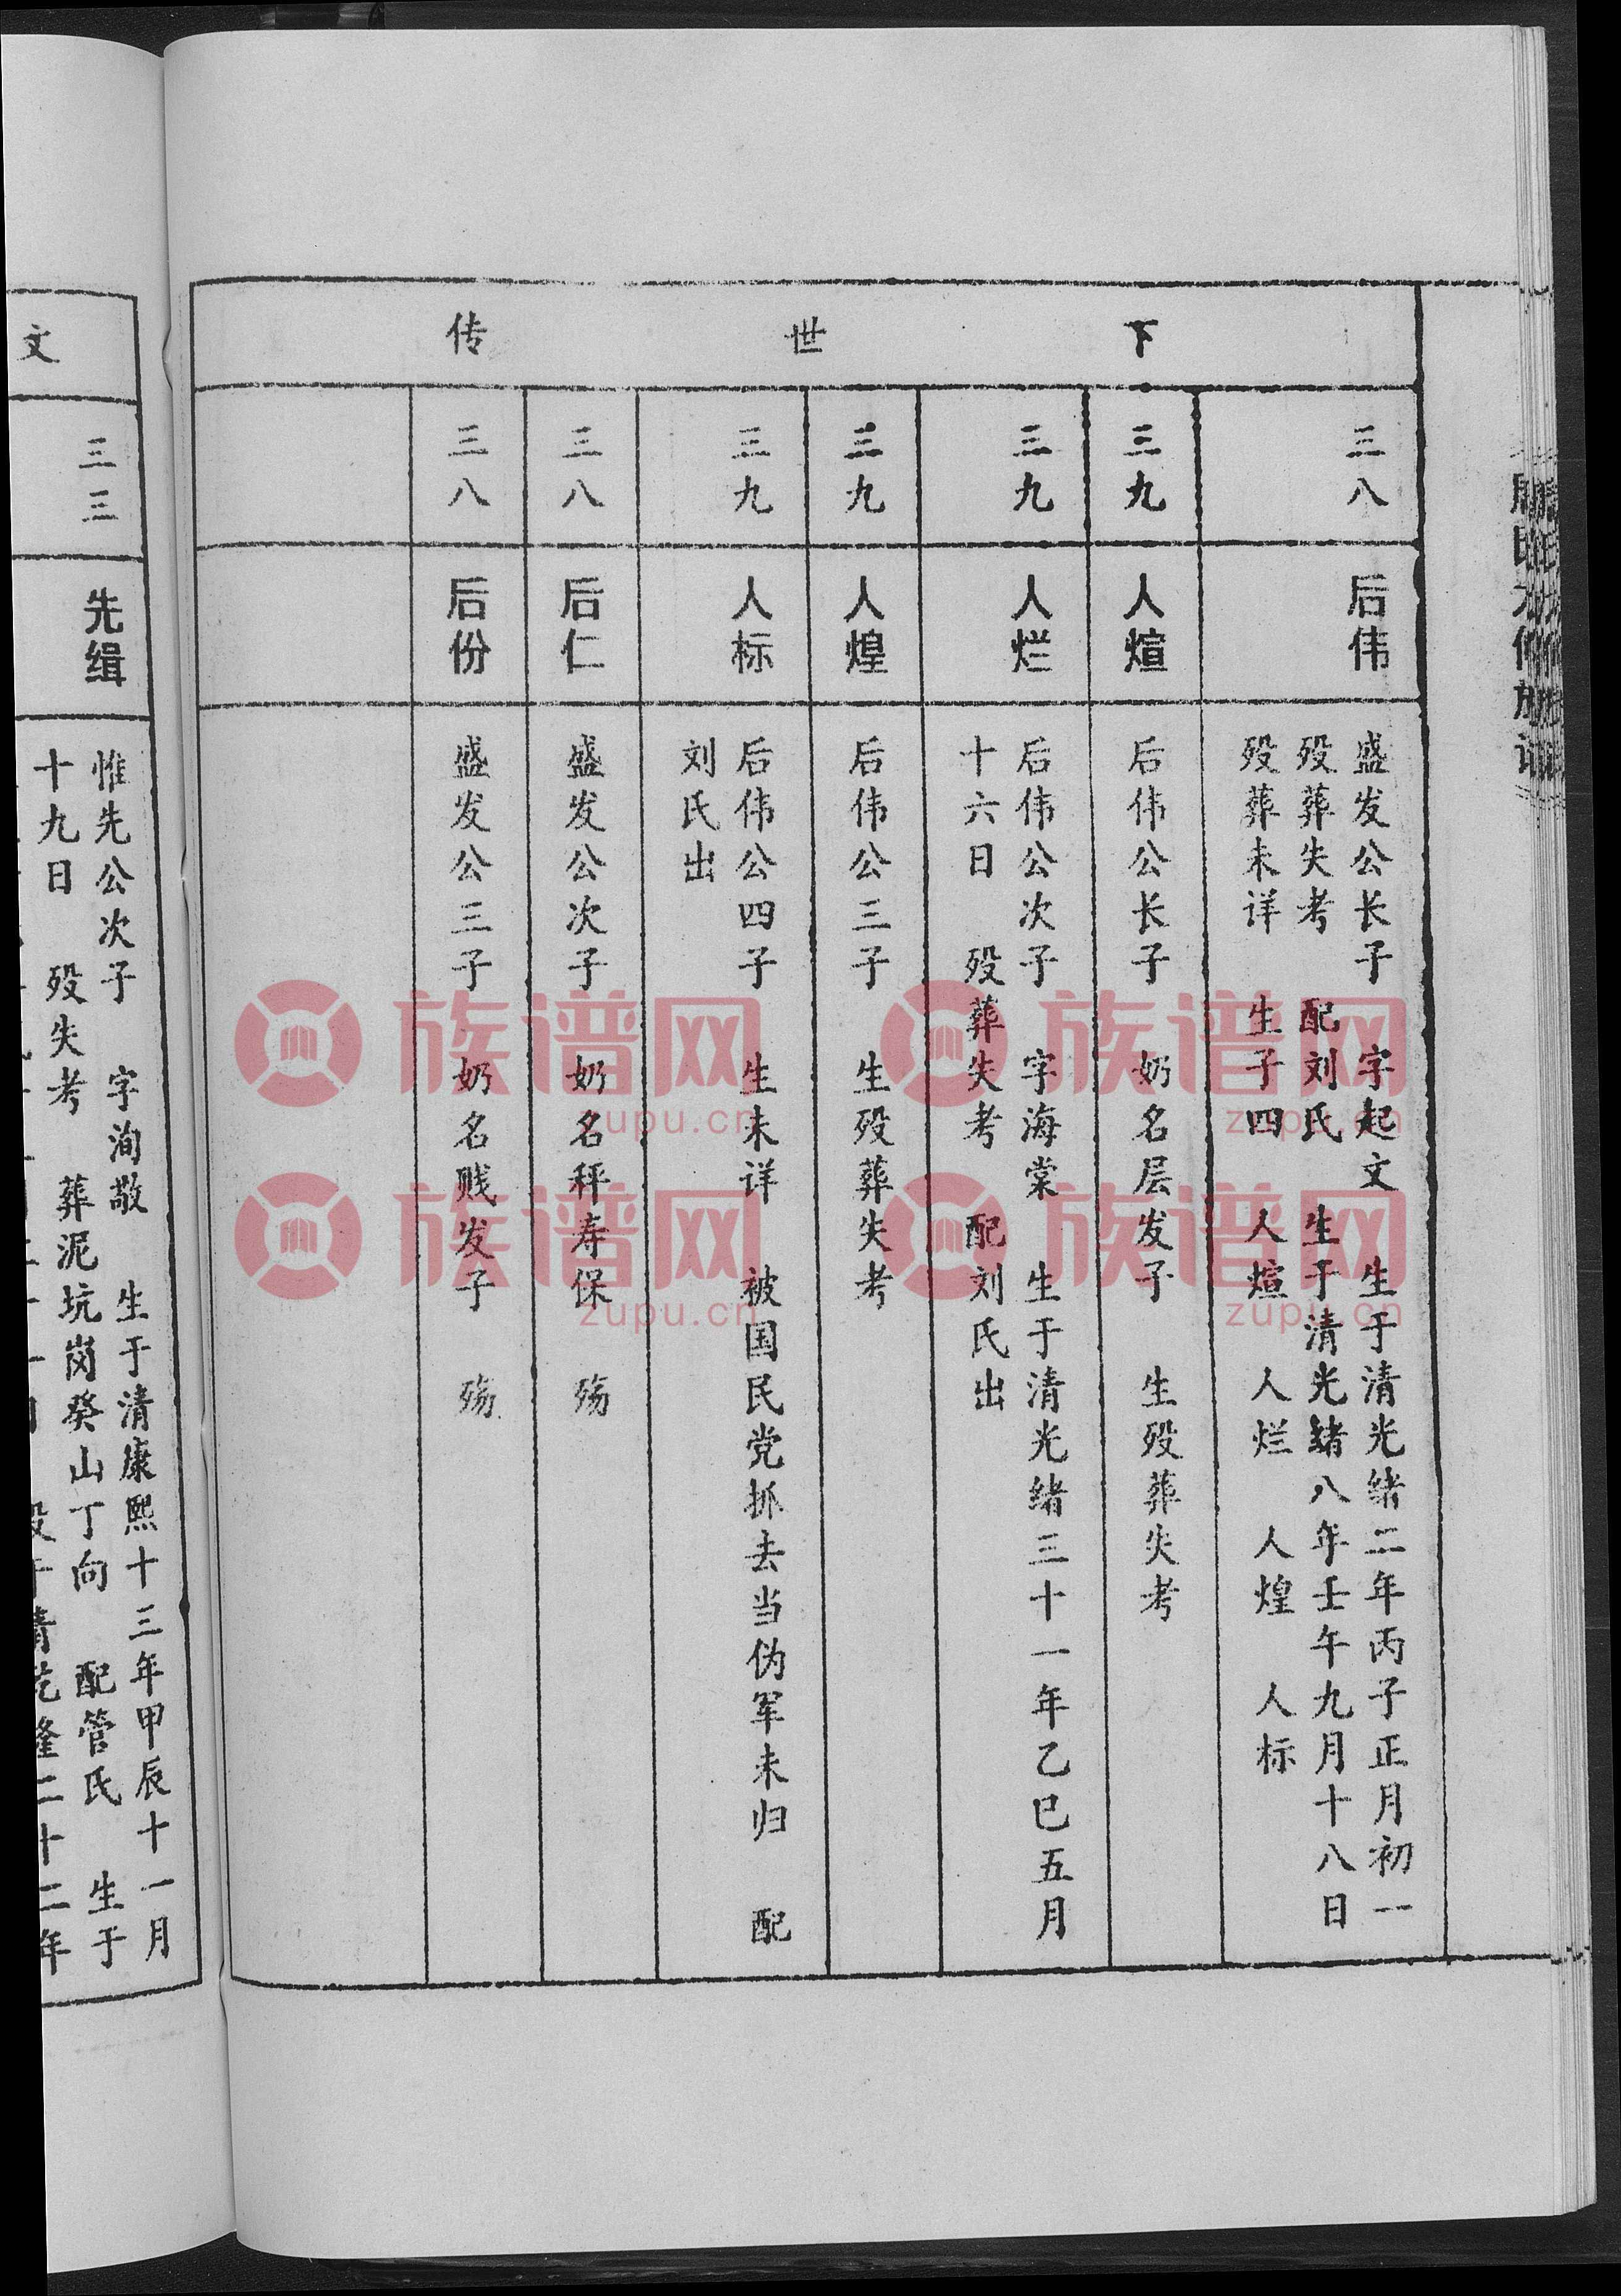 下世传
三八
后伟
盛发公长子 字起文 生于清光绪二年丙子正月初一
殁葬失考 配刘氏 生于清光绪八年壬午九月十八日
殁葬未详 生子四 人煊 人烂 人煌 人标
三九
人煊
后伟公长子 奶名层发子 生殁葬失考
三九
人烂
后伟公次子 字海棠 生于清光绪三十一年乙巳五月
十六日 殁葬失考 配刘氏出
三九
人煌
后伟公三子 生殁葬失考
三九
人标
后伟公四子 生未详 被国民党抓去当伪军未归 配
刘氏出
三八
后仁
盛发公次子 奶名秤寿保 殇
三八
后份
盛发公三子 奶名贱发子 殇
文
三三
先缉
惟先公次子 字洵敬 生于清康熙十三年甲辰十一月
十九日 殁失考 葬泥坑岗癸山丁向 配管氏 生于
清乾隆二十二年
族谱网
zupu.cn
族谱网
zupu.cn
族谱网
zupu.cn
族谱网
zupu.cn